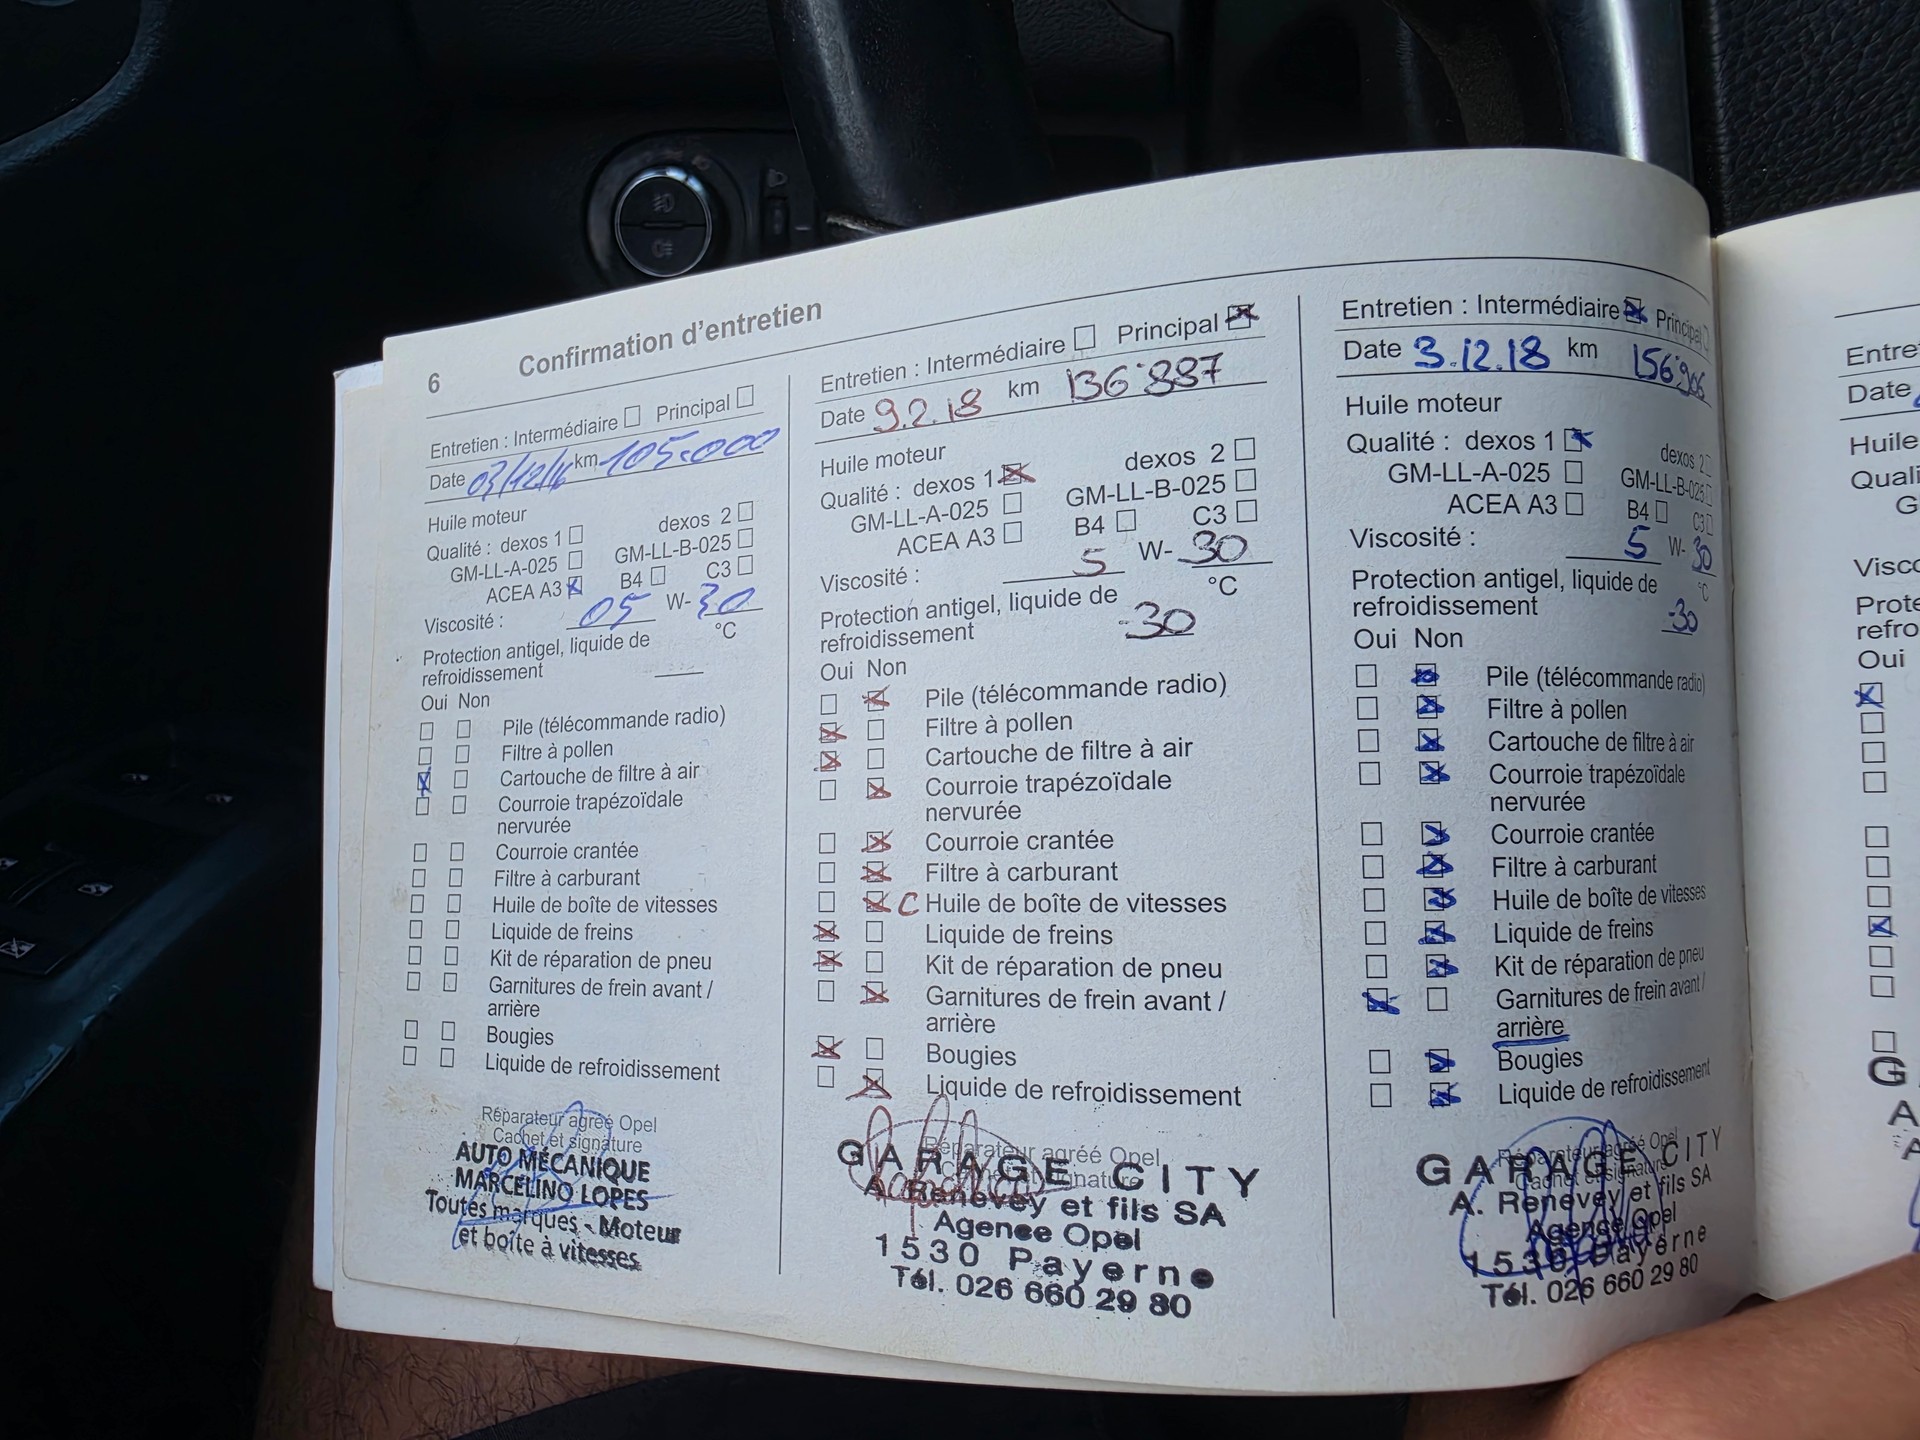 6 Confirmation d'entretien
Entretien : Intermédiaire Principal
Date 03/12/16 km 105.000
Huile moteur
Qualité : dexos 1 dexos 2
GM-LL-A-025 GM-LL-B-025
ACEA A3 B4 C3
Viscosité : 05 W- 30
Protection antigel, liquide de °C
refroidissement
Oui Non
Pile (télécommande radio)
Filtre à pollen
Cartouche de filtre à air
Courroie trapézoïdale
nervurée
Courroie crantée
Filtre à carburant
Huile de boîte de vitesses
Liquide de freins
Kit de réparation de pneu
Garnitures de frein avant /
arrière
Bougies
Liquide de refroidissement
Réparateur agréé Opel
Cachet et signature
AUTO MÉCANIQUE
MARCELINO LOPES
Toutes marques - Moteur
et boîte à vitesses
Entretien : Intermédiaire Principal
Date 9.2.18 km 136'887
Huile moteur
Qualité : dexos 1 dexos 2
GM-LL-A-025 GM-LL-B-025
ACEA A3 B4 C3
Viscosité : 5 W- 30
Protection antigel, liquide de °C
refroidissement -30
Oui Non
Pile (télécommande radio)
Filtre à pollen
Cartouche de filtre à air
Courroie trapézoïdale
nervurée
Courroie crantée
Filtre à carburant
C Huile de boîte de vitesses
Liquide de freins
Kit de réparation de pneu
Garnitures de frein avant /
arrière
Bougies
Liquide de refroidissement
Réparateur agréé Opel
Cachet et signature
GARAGE CITY
A. Renevey et fils SA
Agence Opel
1530 Payerne
Tél. 026 660 29 80
Entretien : Intermédiaire Principal
Date 3.12.18 km 156'906
Huile moteur
Qualité : dexos 1 dexos 2
GM-LL-A-025 GM-LL-B-025
ACEA A3 B4 C3
Viscosité : 5 W- 30
Protection antigel, liquide de °C
refroidissement -30
Oui Non
Pile (télécommande radio)
Filtre à pollen
Cartouche de filtre à air
Courroie trapézoïdale
nervurée
Courroie crantée
Filtre à carburant
Huile de boîte de vitesses
Liquide de freins
Kit de réparation de pneu
Garnitures de frein avant /
arrière
Bougies
Liquide de refroidissement
Réparateur agréé Opel
Cachet et signature
GARAGE CITY
A. Renevey et fils SA
Agence Opel
1530 Payerne
Tél. 026 660 29 80
Entre
Date
Huile
Quali
G
Visco
Prote
refro
Oui
G
A
A